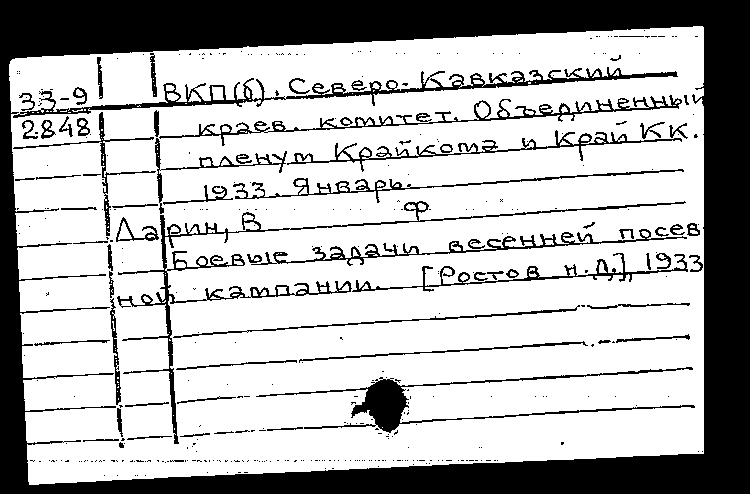 33-9 ВКП(б). Северо-Кавказский
2848 краев. комитет. Объединенный
пленум Крайкома и Край КК.
1933. Январь.
Ларин, В ф
Боевые задачи весенней посев-
ной кампании. [Ростов н.Д.], 1933